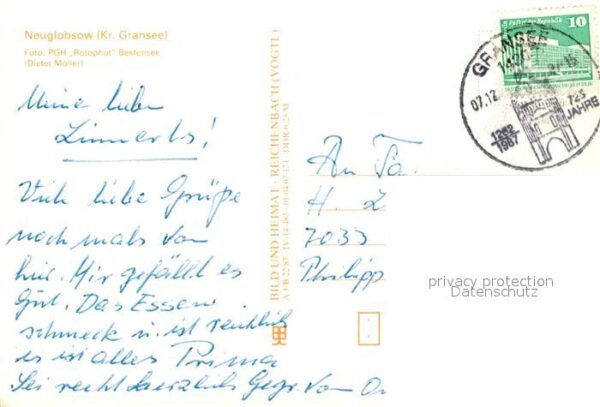 Neuglobsow (Kr. Gransee)
Foto: PGH „Rotophot“ Bestensee
(Dieter Möller)
Meine lieben
Zinnerls!
Viele liebe Grüße
noch mals von
hier. Mir gefällt es
Gut. Das Essen
schmeck u. ist reichlich
es ist alles Prima
Sei recht herzlich Gegr. von O
BILD UND HEIMAT · REICHENBACH (VOGTL)
An Fa.
H. Z
7033
Philipp
P. Palast der Republik 10
GRANSEE
1431
07.12
725
JAHRE
1262
1987
privacy protection
Datenschutz